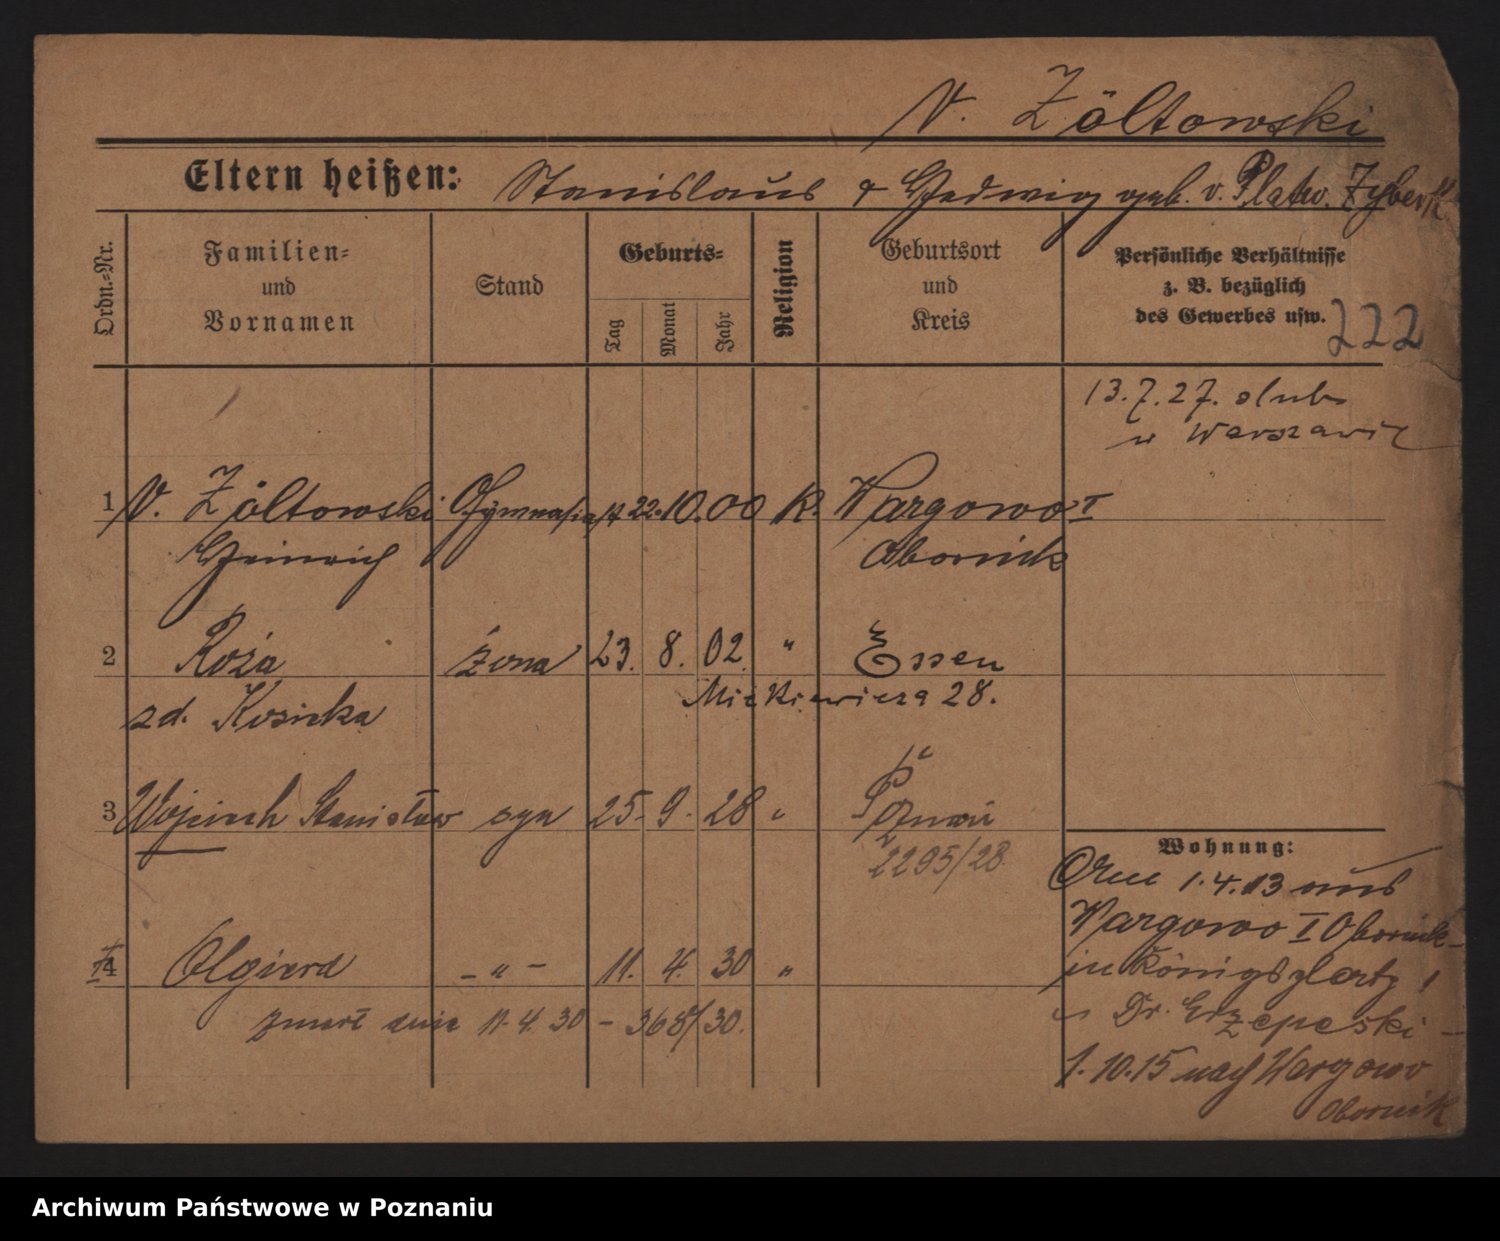 v. Żółtowski
Eltern heißen: Stanislaus & Hedwig geb. v. Plater Zyberk
Ordn.-Nr.
Familien-
und
Vornamen
Stand
Geburts-
Tag
Monat
Jahr
Religion
Geburtsort
und
Kreis
Persönliche Verhältnisse
z. B. bezüglich
des Gewerbes usw.
222
13.7.27. ślub
w Warszawie
1 v. Zóltowski Gymnasiast 22.10.00 K. Wargowo I
Heinrich Obornik
2 Róża żona 23. 8. 02 " Essen
zd. Kosicka Mickiewicza 28.
3 Wojciech Stanisław syn 25. 9. 28 " Poznań
2295/28
Wohnung:
1.4.13 aus
Wargowo I Obornik
in Königsplatz 1
Dr.
4 Olgierd – " – 11. 4. 30 "
zmarł dnia 11.4.30 – 368/30.
1.10.15 nach Wargowo
Obornik
Archiwum Państwowe w Poznaniu